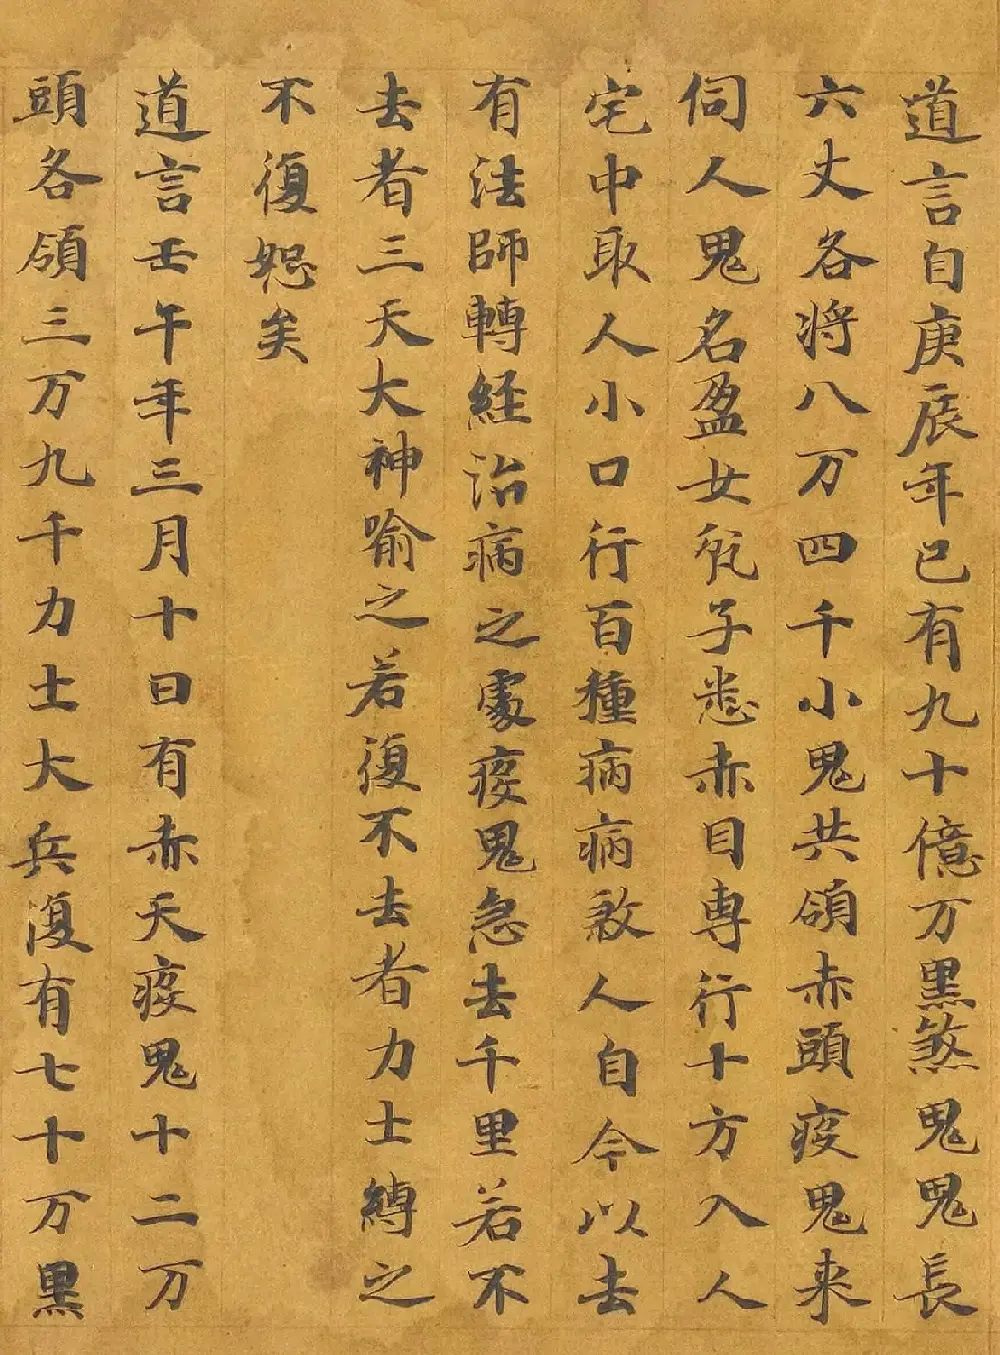 道言自庚辰年已有九十億万黒煞鬼鬼長
六丈各将八万四千小鬼共領赤頭疫鬼来
伺人鬼名盈女名子悉赤目専行十方入人
宅中取人小口行百種病病煞人自今以去
有法師轉経治病之處疫鬼急去千里若不
去者三天大神喻之若復不去者力士縛之
不復恕矣
道言壬午年三月十日有赤天疫鬼十二万
頭各領三万九千力士大兵復有七十万黒